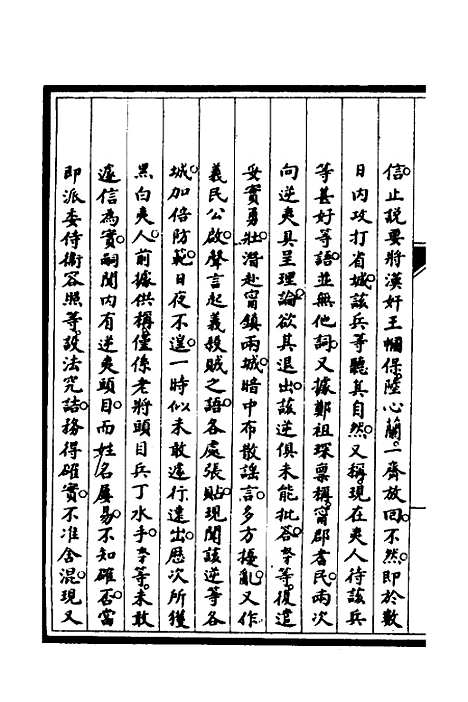 信止説要將漢奸王幗保陸心蘭一齊放回不然即於數
日内攻打省城該兵等聽其自然又稱現在夷人待該兵
等甚好等語並無他詞又據鄭祖琛禀稱甯郡耆民兩次
向逆夷具呈理論欲其退出該逆俱未能批答等復遣
妥實勇壯潛赴甯鎮兩城暗中布散謡言多方擾亂又作
義民公啟聲言起義殺賊之語各處張貼現聞該逆等各
城加倍防範日夜不遑一時似未敢遽行遠出歷次所獲
黑白夷人前據供稱僅係老將頭目兵丁水手等未敢
遽信為實嗣聞内有逆夷頭目而姓名屢易不知確否當
即派委侍衛容照等設法究詰務得確實不准含混現又